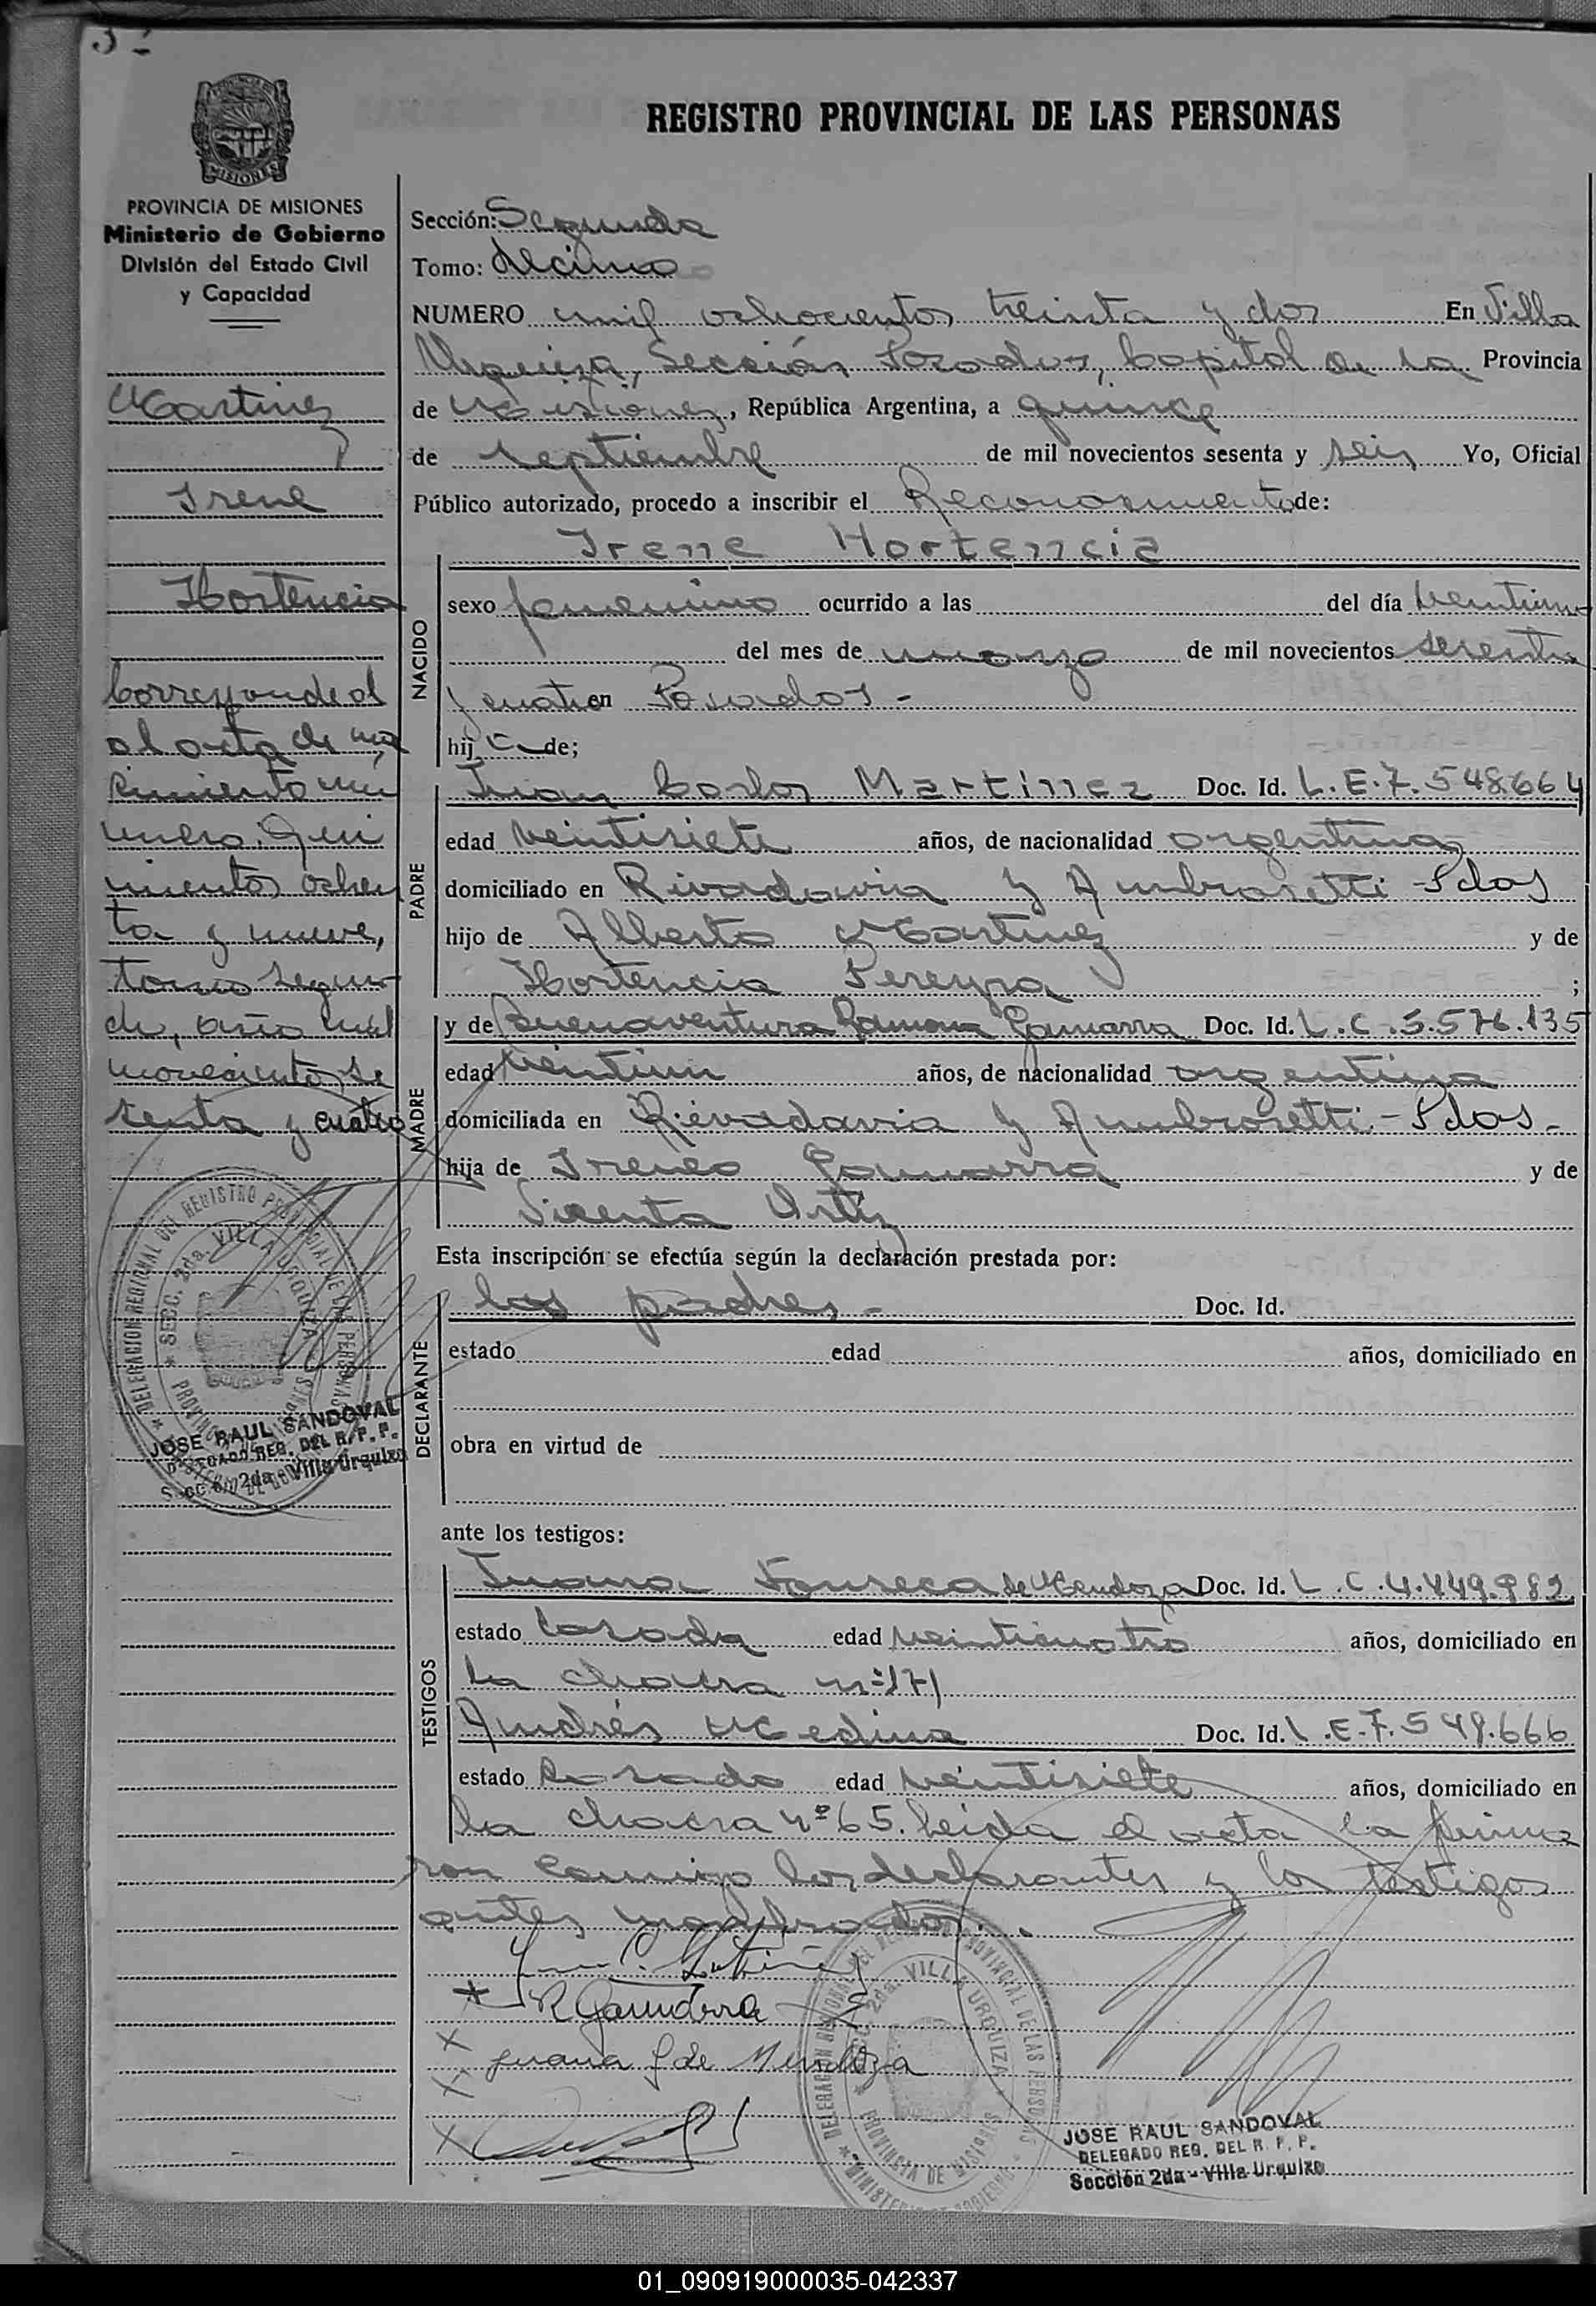 REGISTRO PROVINCIAL DE LAS PERSONAS
MISIONES
PROVINCIA DE MISIONES
Ministerio de Gobierno
División del Estado Civil
y Capacidad
Martinez
Irene
Hortencia
Corresponde al
al acta de na
cimiento nú
mero. Qui
nientos ochen
ta y nueve,
tomo segun
do, año mil
novecientos se
senta y cuatro
DELEGACION REGIONAL DEL REGISTRO PROVINCIAL DE LAS PERSONAS
SECC. 2da. VILLA URQUIZA
PROVINCIA DE MISIONES
JOSE RAUL SANDOVAL
DELEGADO REG. DEL R. P. P.
SECC. 2da - Villa Urquiza
Sección: Segunda
Tomo: Décimo
NUMERO mil ochocientos treinta y dos En Villa
Urquiza, Sección Posadas, Capital de la Provincia
de Misiones, República Argentina, a quince
de septiembre de mil novecientos sesenta y seis Yo, Oficial
Público autorizado, procedo a inscribir el Reconosimiento de:
NACIDO
Irene Hortencia
sexo femenino ocurrido a las del día veintiuno
del mes de marzo de mil novecientos sesenta
y cuatro en Posadas -
hij a de;
PADRE
Juan Carlos Martinez Doc. Id. L.E.7.548.664
edad veintisiete años, de nacionalidad argentina
domiciliado en Rivadavia y Ambrosetti - Pdas
hijo de Alberto Martinez y de
Hortencia Pereyra ;
MADRE
y de Buenaventura Ramona Gamarra Doc. Id. L.C.5.576.135
edad veintiun años, de nacionalidad argentina
domiciliada en Rivadavia y Ambrosetti - Pdas -
hija de Ireneo Gamarra y de
Vicenta Ortiz
Esta inscripción se efectúa según la declaración prestada por:
DECLARANTE
los padres - Doc. Id.
estado edad años, domiciliado en
obra en virtud de
ante los testigos:
TESTIGOS
Juana Fonseca de Mendoza Doc. Id. L.C.4.449.982
estado casada edad veinticuatro años, domiciliado en
La chacra nº 171
Andrés Medina Doc. Id. L.E.7.549.666
estado casado edad veintisiete años, domiciliado en
la chacra nº 65. Leida el acta la firma
ron conmigo los declarantes y los testigos
antes nombrados.
R Gamarra
Juana F de Mendoza
DELEGACION REGIONAL DEL REGISTRO PROVINCIAL DE LAS PERSONAS
SECC. 2da. VILLA URQUIZA
PROVINCIA DE MISIONES
JOSE RAUL SANDOVAL
DELEGADO REG. DEL R. P. P.
Sección 2da - Villa Urquiza
01_090919000035-042337